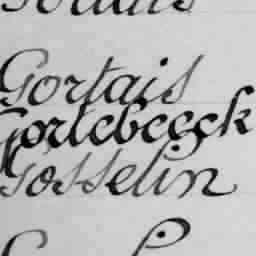 Gortais
Gortebeeck
Gosselin